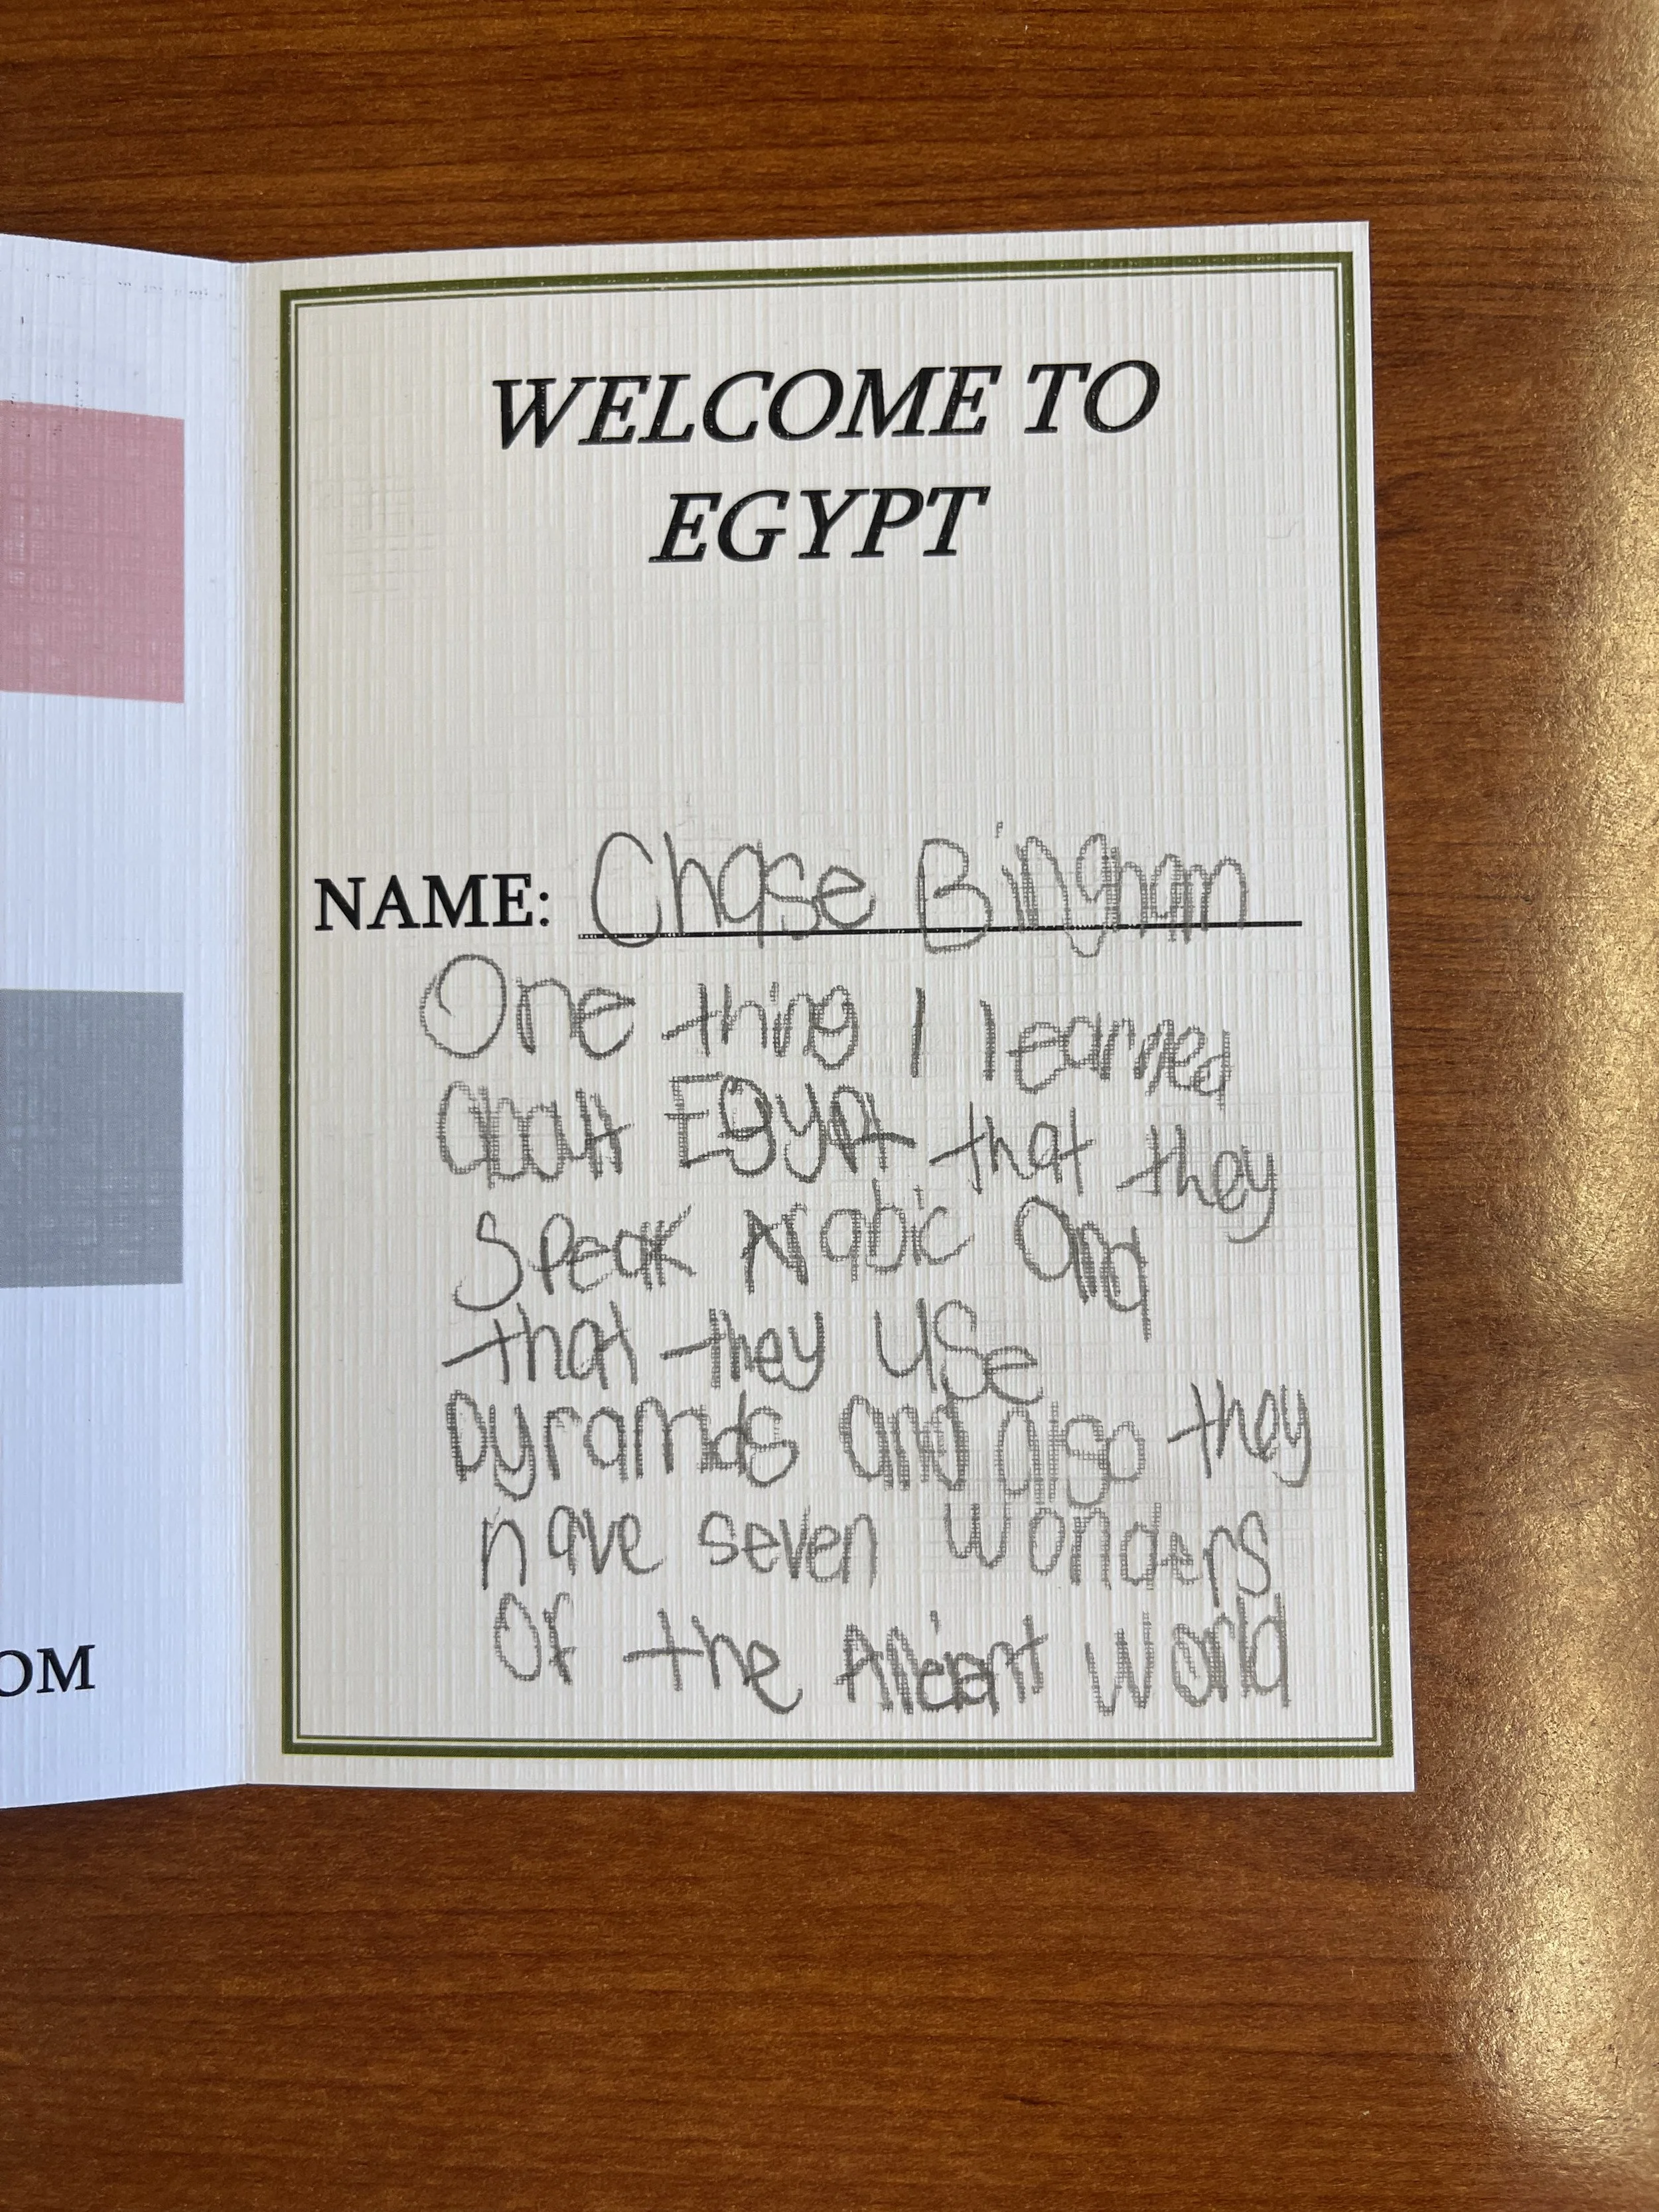 WELCOME TO
EGYPT
NAME: Chase Bingham
One thing I learned
about Egypt that they
Speak Arabic and
that they use
pyramids and also they
have seven wonders
of the Ancient World
OM